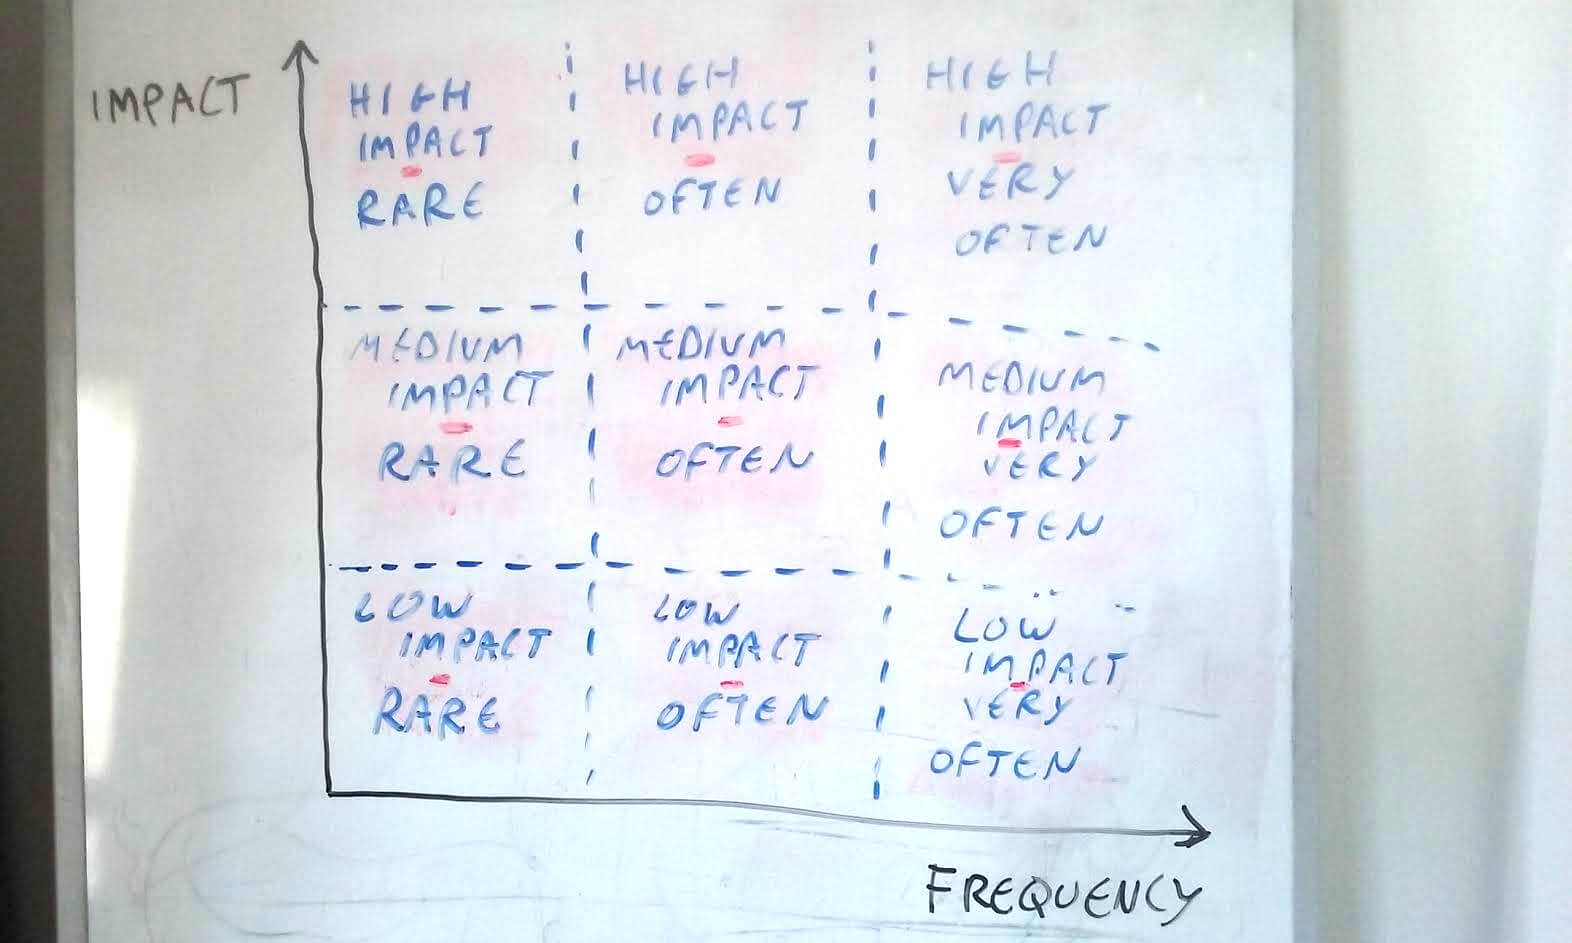 IMPACT
HIGH
IMPACT
RARE
HIGH
IMPACT
OFTEN
HIGH
IMPACT
VERY
OFTEN
MEDIUM
IMPACT
RARE
MEDIUM
IMPACT
OFTEN
MEDIUM
IMPACT
VERY
OFTEN
LOW
IMPACT
RARE
LOW
IMPACT
OFTEN
LOW
IMPACT
VERY
OFTEN
FREQUENCY